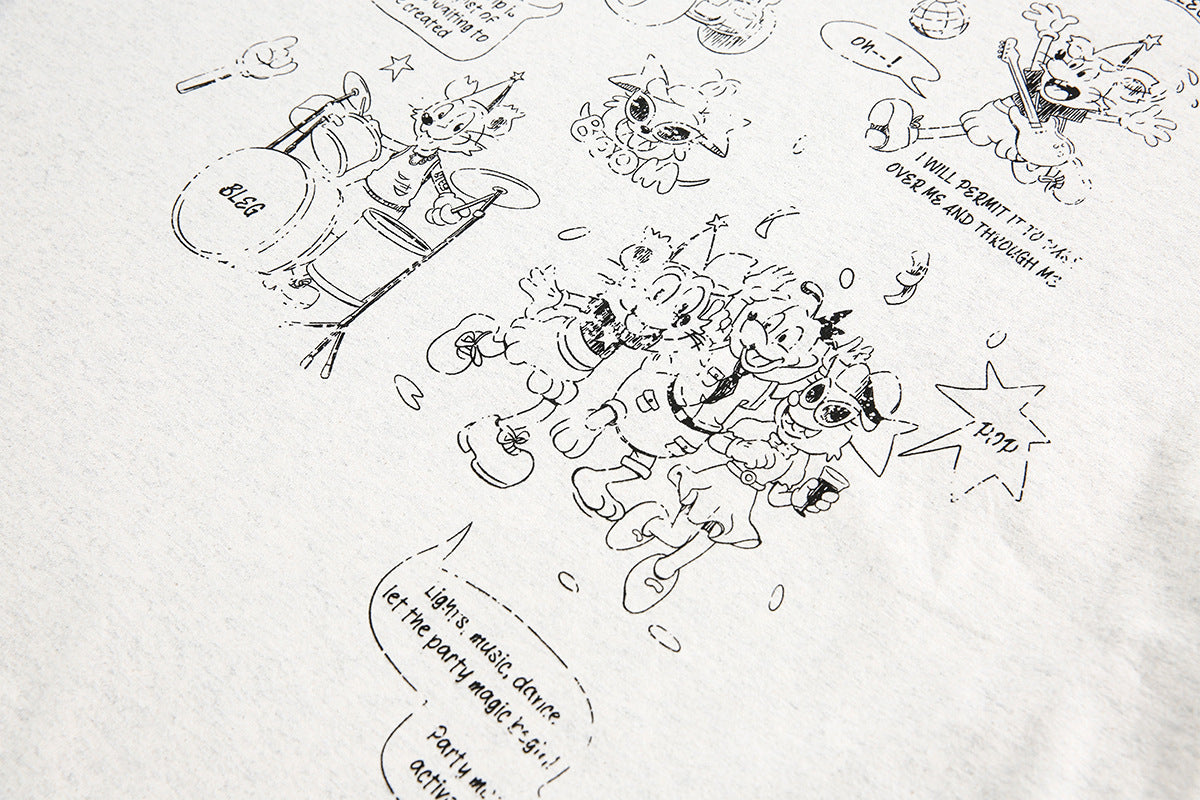 list of
waiting to
created
oh--!
BLEG
I WILL PERMIT IT TO PASS
OVER ME AND THROUGH ME
Lights, music, dance,
let the party magic begin!
Party